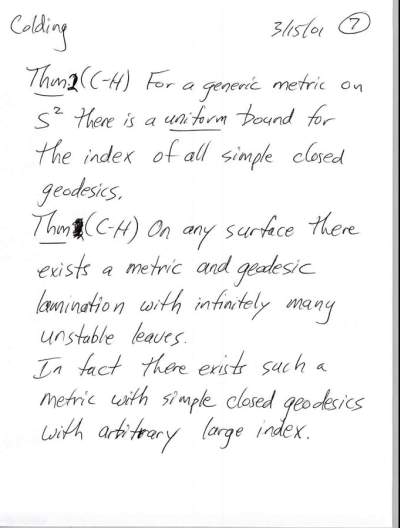 Colding 3/15/01 7
Thm 2 (C-H) For a generic metric on
S² there is a uniform bound for
the index of all simple closed
geodesics.
Thm (C-H) On any surface there
exists a metric and geodesic
lamination with infinitely many
unstable leaves.
In fact there exists such a
metric with simple closed geodesics
with arbitrary large index.